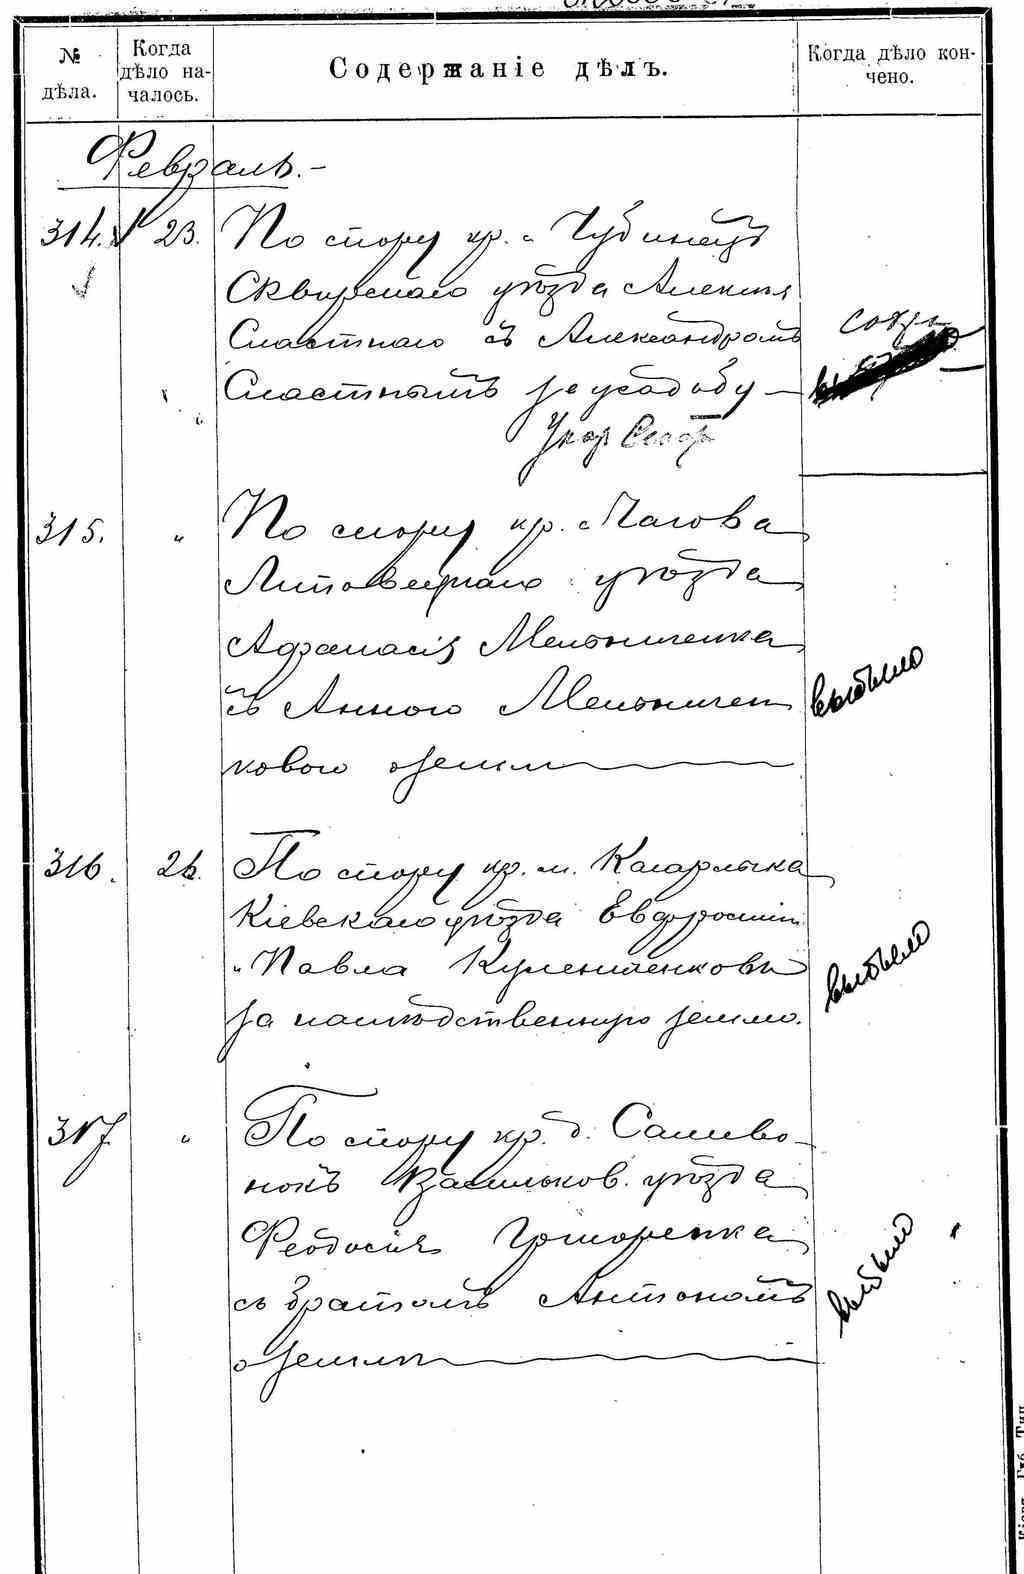 № дѣла.
Когда дѣло на-
чалось.
Содержаніе дѣлъ.
Когда дѣло кон-
чено.
Февраль.-
314. 23. По спору кр. с. Чубинецъ
Сквирскаго уѣзда Алексѣя
Сластнаго съ Александромъ
Сластнымъ за усадьбу —
315. " По спору кр.
Липовецкаго уѣзда
Афанасія Мельниченка
съ Анною Мельничен
ковою о земли
выбыло
316. 26. По спору кр. м. Кагарлыка
Кіевскаго уѣзда Евфросиніи
и Павла
за наслѣдственную землю.
выбыло
317. " По спору кр. д. Саливо-
нокъ Васильков. уѣзда
Феодосія Григоренка
съ братомъ Антономъ
о земли
выбыло